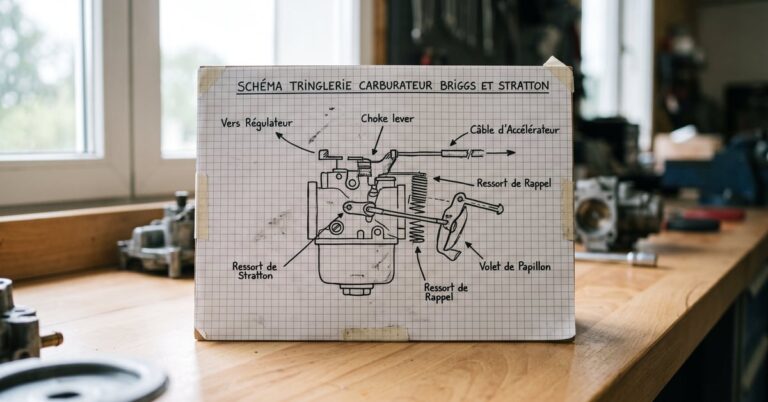 SCHÉMA TRINGLERIE CARBURATEUR BRIGGS ET STRATTON
Vers Régulateur
Choke lever
Câble d'Accélérateur
Ressort de Rappel
Ressort de
Stratton
Ressort de
Rappel
Volet de Papillon